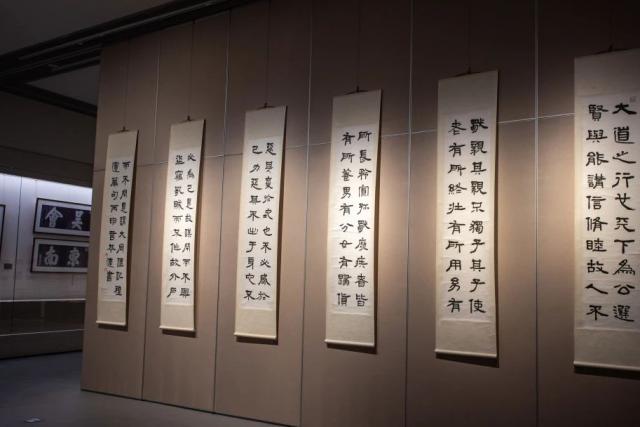 大道之行也天下為公選
賢與能講信脩睦故人不
獨親其親不獨子其子使
老有所終壯有所用幼有
所長矜寡孤獨廢疾者皆
有所養男有分女有歸貨
惡其棄於地也不必藏於
己力惡其不出于身也不
必為己是故謀閉而不興
盜竊亂賊而不作故外戶
而不閉是謂大同禮記禮
運篇句丙申
吳會
東南